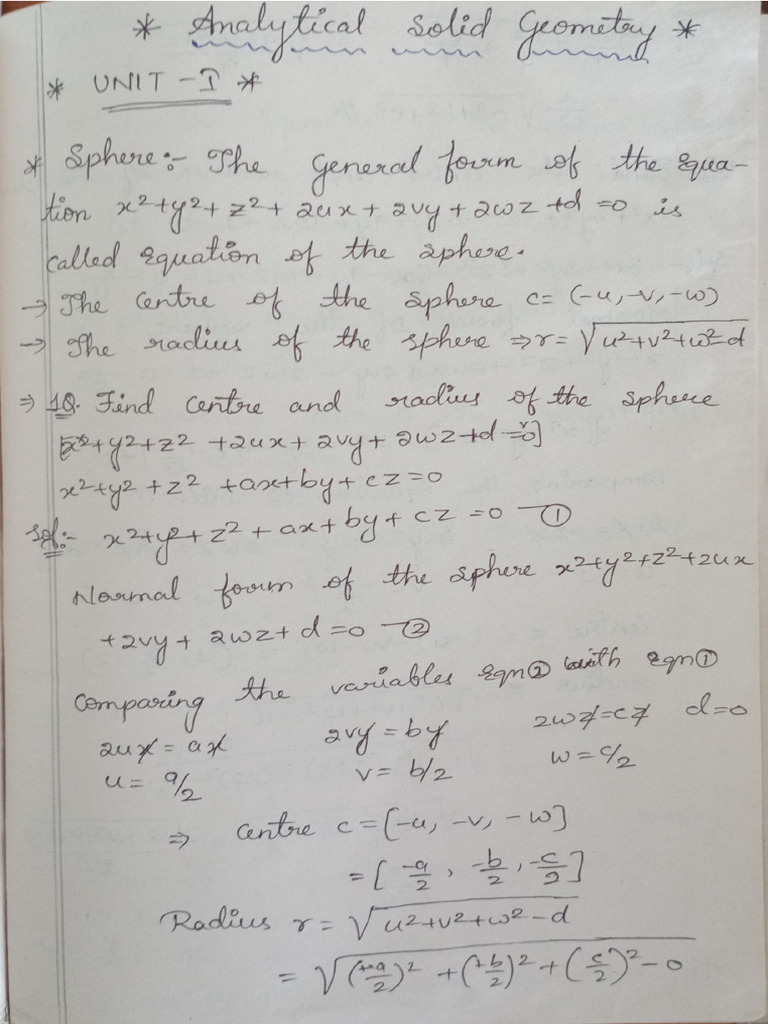 * Analytical Solid Geometry *
* UNIT - I *
* Sphere:- The General form of the equa-
tion x²+y²+z²+2ux+2vy+2wz+d=0 is
called equation of the sphere.
→ The centre of the sphere c= (-u,-v,-w)
→ The radius of the sphere ⇒ r= √(u²+v²+w²-d)
⇒ 1Q. Find centre and radius of the sphere
[x²+y²+z² +2ux+2vy+2wz+d=0]
x²+y²+z² +ax+by+cz=0
Sol:- x²+y²+z²+ax+by+cz=0 —①
Normal form of the sphere x²+y²+z²+2ux
+2vy+2wz+d=0 —②
Comparing the variables eqn② with eqn①
2ux = ax 2vy = by 2wz=cz d=0
u= a/2 v= b/2 w=c/2
⇒ centre c=[-u, -v, -w]
= [-a/2, -b/2, -c/2]
Radius r= √(u²+v²+w²-d)
= √((+a/2)² +(+b/2)²+(c/2)²-0)